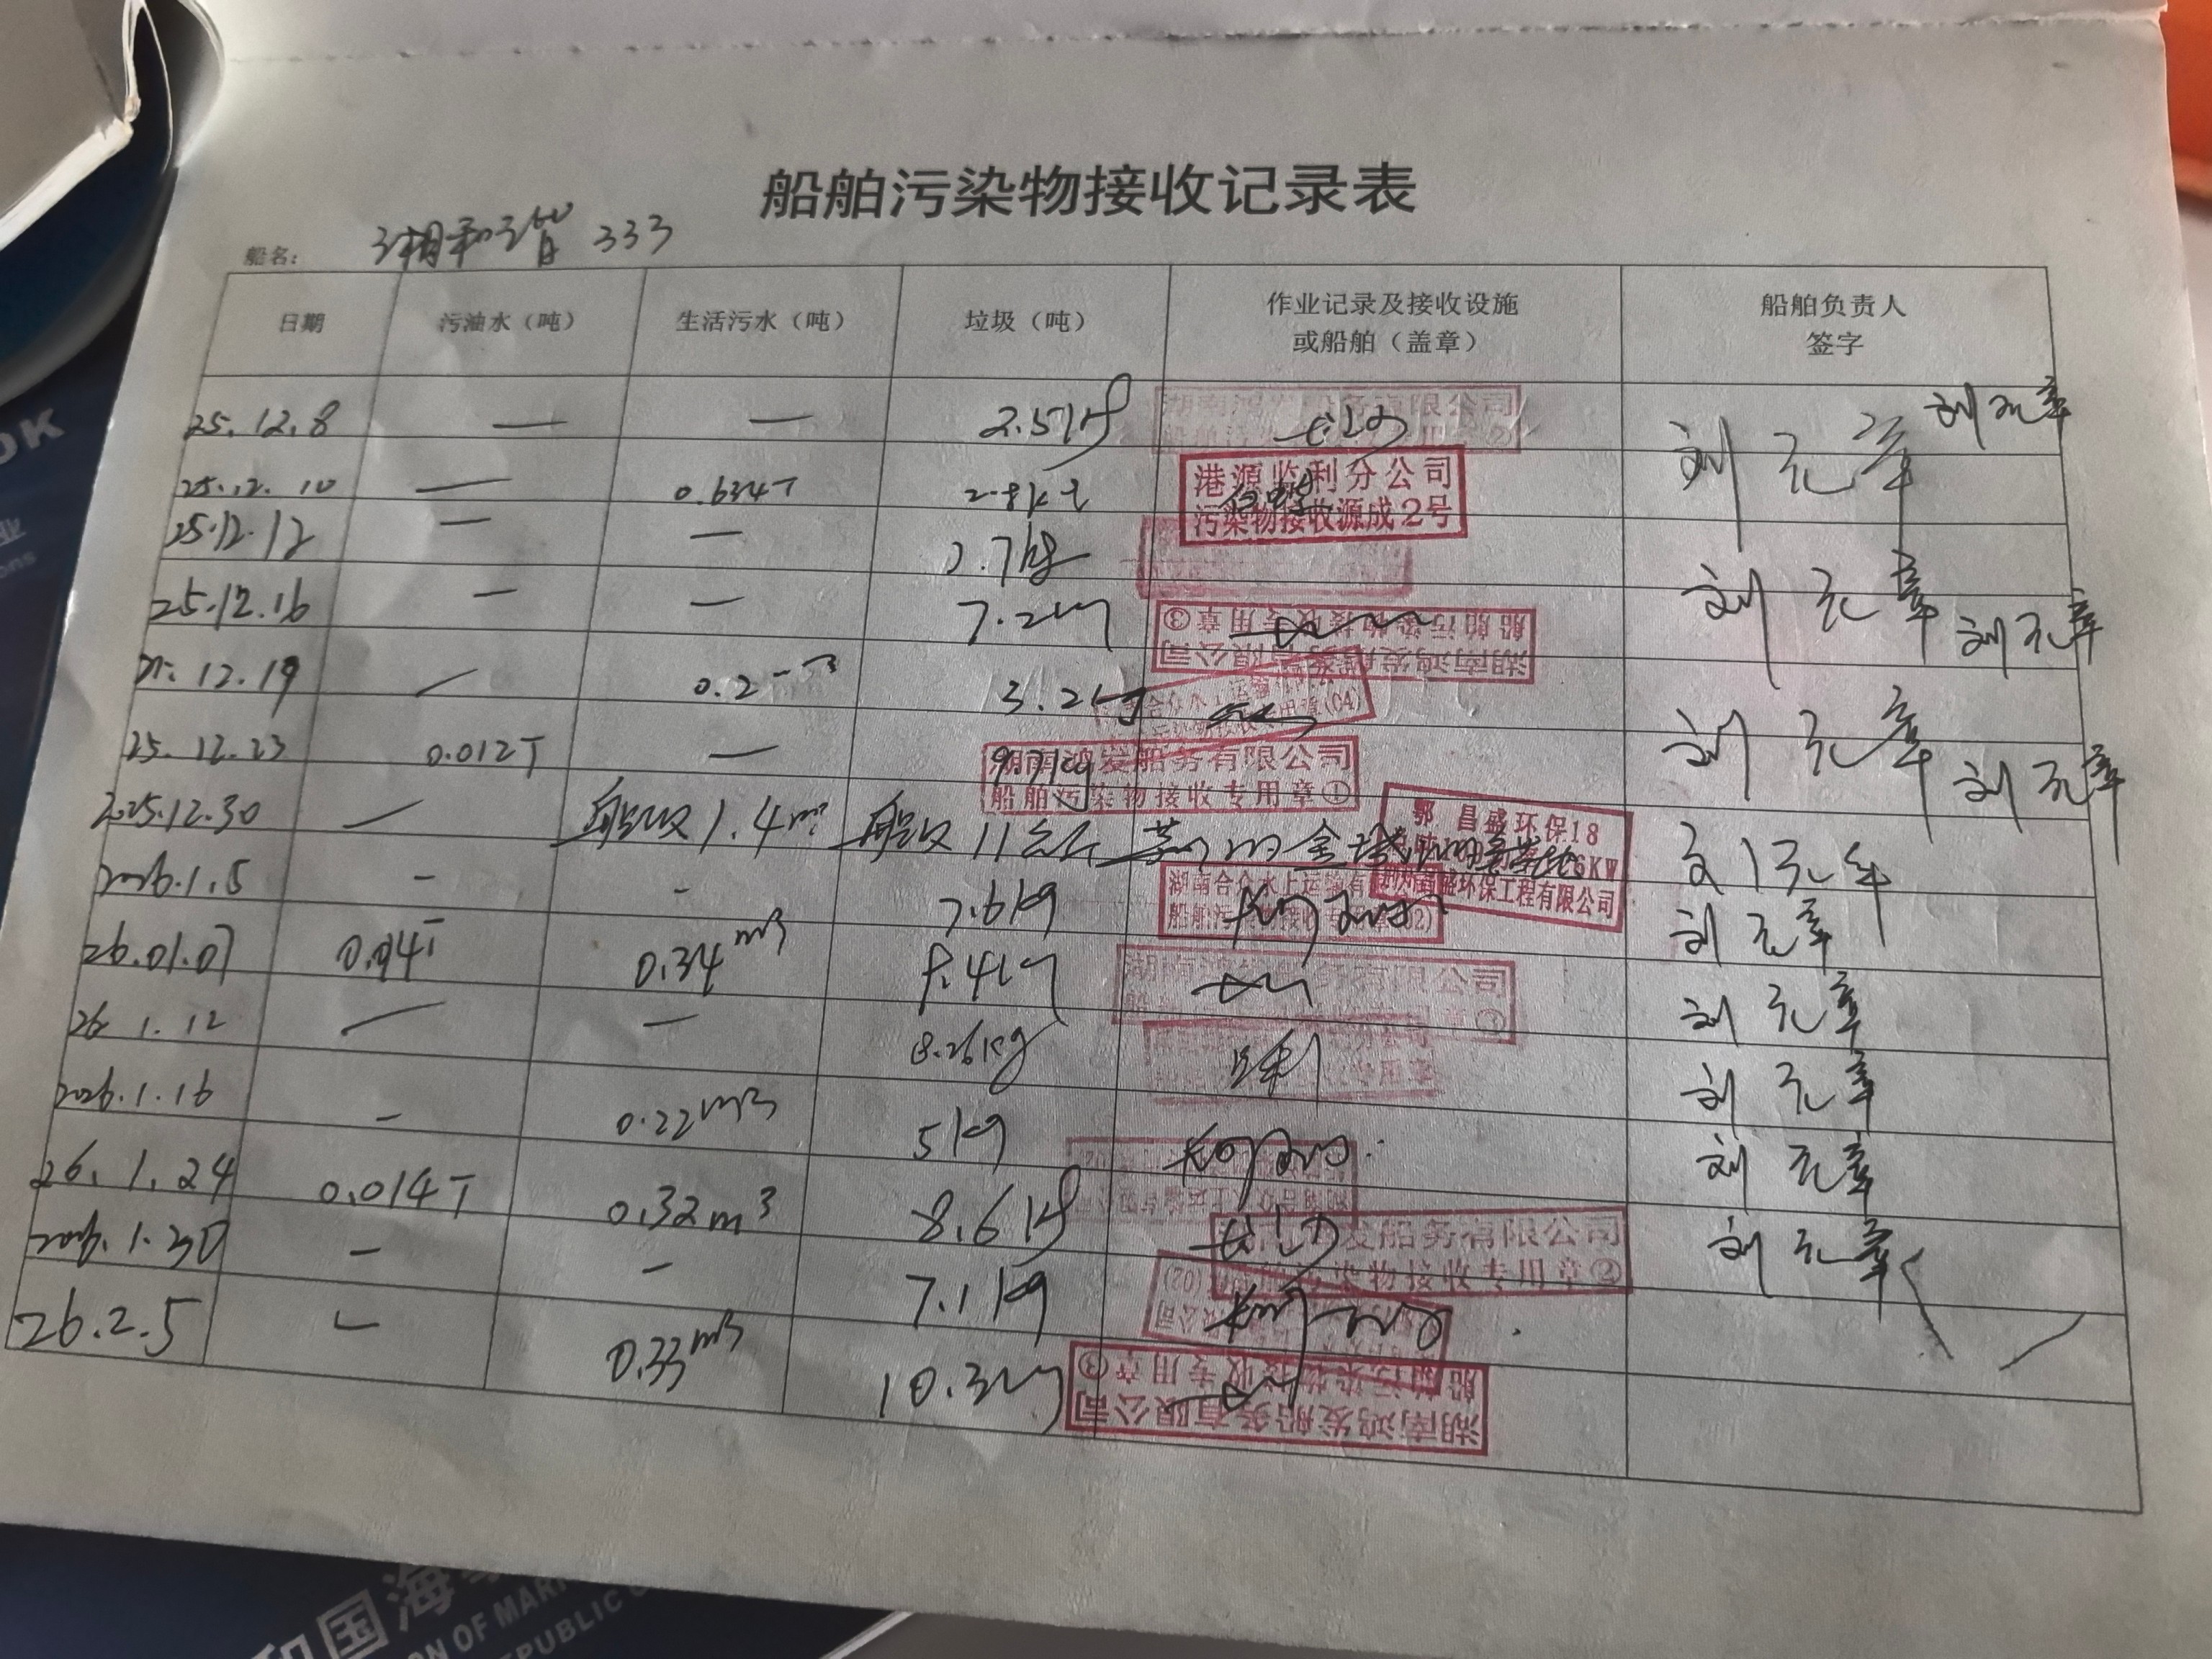 船舶污染物接收记录表
船名: 湘和谐 333
日期 污油水（吨） 生活污水（吨） 垃圾（吨） 作业记录及接收设施或船舶（盖章） 船舶负责人签字
25.12.8 — — 2.5kg 长沙 刘元章 刘元章
湖南鸿发船务有限公司
25.12.10 — 0.634T 2.8kg 刘元章
港源监利分公司
污染物接收源成2号
25.12.12 — — 7kg 刘元章
25.12.16 — — 7.2kg 刘元章
湖南鸿发船务有限公司
船舶污染物接收专用章③
12.19 — 0.2 3.2kg 刘元章
合众水上运输 (04)
25.12.23 0.012T — 9.7kg 刘元章
湖南鸿发船务有限公司
船舶污染物接收专用章①
2025.12.30 — 1.4m³ 11
鄂 昌盛环保18
6KW
昌盛环保工程有限公司
2026.1.5 - - 7.6kg 刘元章
湖南合众水上运输有限
船舶污 接收专 02)
26.01.07 0.014T 0.34m³ 8.4kg 刘元章
湖南鸿发船务有限公司
26 1.12 — — 8.26kg 监利 刘元章
2026.1.16 - 0.22m³ 5kg 刘元章
26.1.24 0.014T 0.32m³ 8.6kg 长沙 刘元章
湖南鸿发船务有限公司
船舶污染物接收专用章②
2026.1.30 - - 7.1kg
26.2.5 — 0.33m³ 10.3kg
湖南鸿发船务有限公司
船舶污染物接收专用章③
OK
和国海
ON OF MAR
REPUBLIC